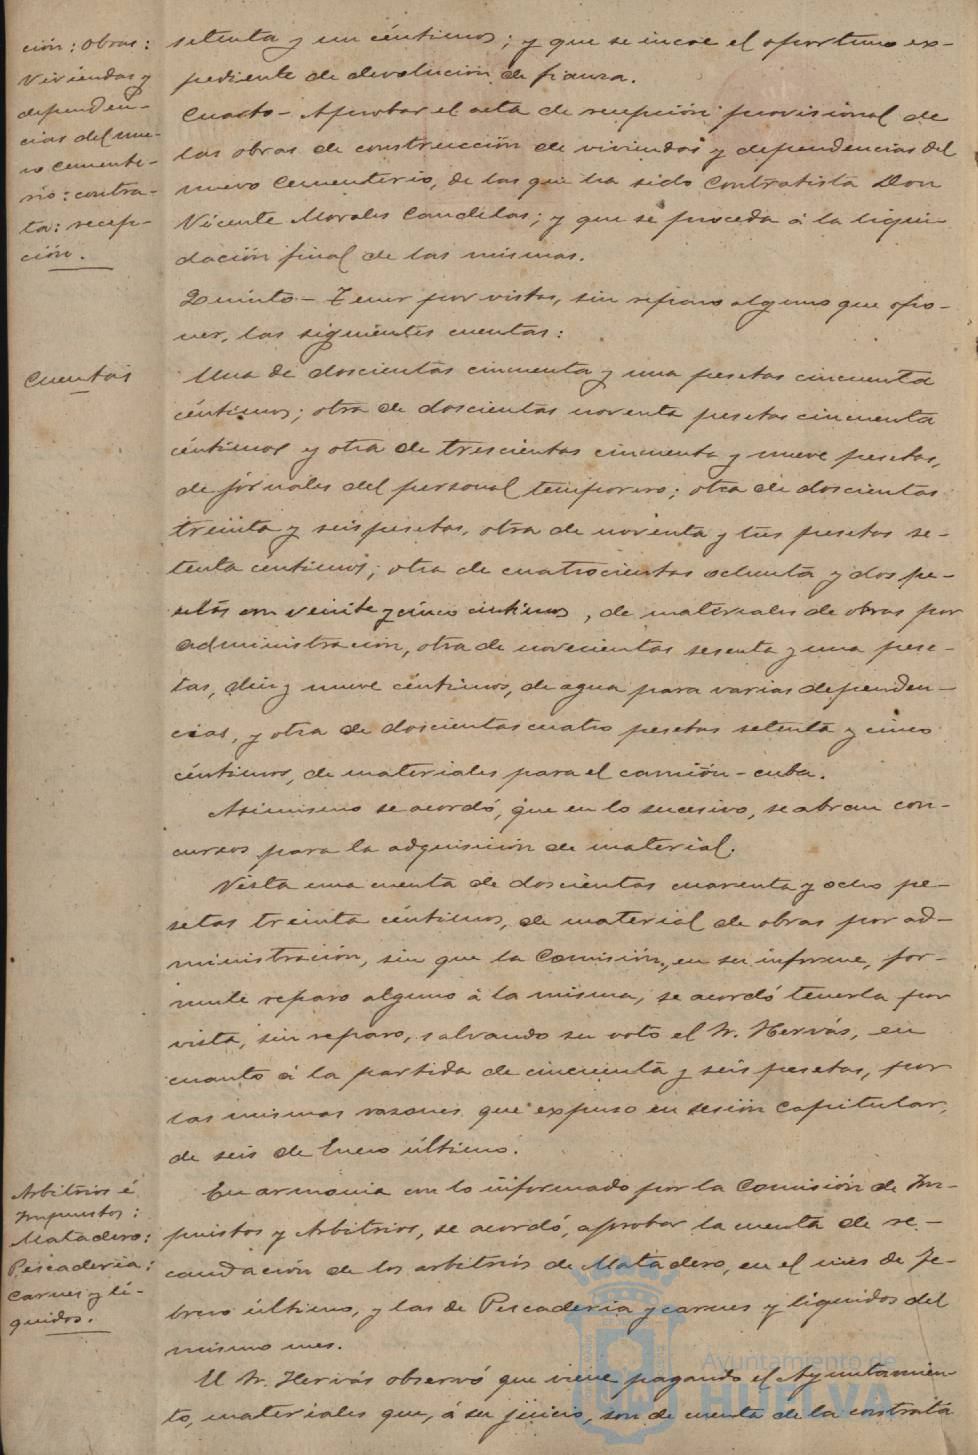 ción: obras:
viviendas y
dependen-
cias del nue-
vo cemente-
rio: contra-
ta: recep-
ción.
setenta y un céntimos; y que se incoe el oportuno ex-
pediente de devolución de fianza.
Cuarto - Aprobar el acta de recepción provisional de
las obras de construcción de viviendas y dependencias del
nuevo Cementerio, de las que ha sido Contratista Don
Vicente Morales Candelas; y que se proceda á la liqui-
dación final de las mismas.
Quinto - Tener por vistas, sin reparo alguno que opo-
ner, las siguientes cuentas:
Cuentas
Una de doscientas cincuenta y una pesetas cincuenta
céntimos; otra de doscientas noventa pesetas cincuenta
céntimos y otra de trescientas cincuenta y nueve pesetas,
de jornales del personal temporero; otra de doscientas
treinta y seis pesetas, otra de noventa y tres pesetas se-
tenta céntimos; otra de cuatrocientas ochenta y dos pe-
setas con veinte y cinco céntimos, de materiales de obras por
administración, otra de novecientas sesenta y una pese-
tas, diez y nueve céntimos, de agua para varias dependen-
cias, y otra de doscientas cuatro pesetas setenta y cinco
céntimos, de materiales para el camión-cuba.
Asimismo se acordó, que en lo sucesivo, se abran con-
cursos para la adquisición de material.
Vista una cuenta de doscientas cuarenta y ocho pe-
setas treinta céntimos, de material de obras por ad-
ministración, sin que la Comisión, en su informe, for-
mule reparo alguno á la misma, se acordó tenerla por
vista, sin reparo, salvando su voto el Sr. Hervás, en
cuanto á la partida de cincuenta y seis pesetas, por
las mismas razones que expuso en sesión Capitular,
de seis de Enero último.
Arbitrios é
Impuestos:
Matadero:
Pescadería:
Carnes y lí-
quidos.
En armonía con lo informado por la Comisión de Im-
puestos y Arbitrios, se acordó, aprobar la cuenta de re-
caudación de los arbitrios de Matadero, en el mes de Fe-
brero último, y las de Pescadería y carnes y líquidos del
mismo mes.
El Sr. Hervás observó que viene pagando el Ayuntamien-
to, materiales que, á su juicio, son de cuenta de la contrata
Ayuntamiento de
HUELVA